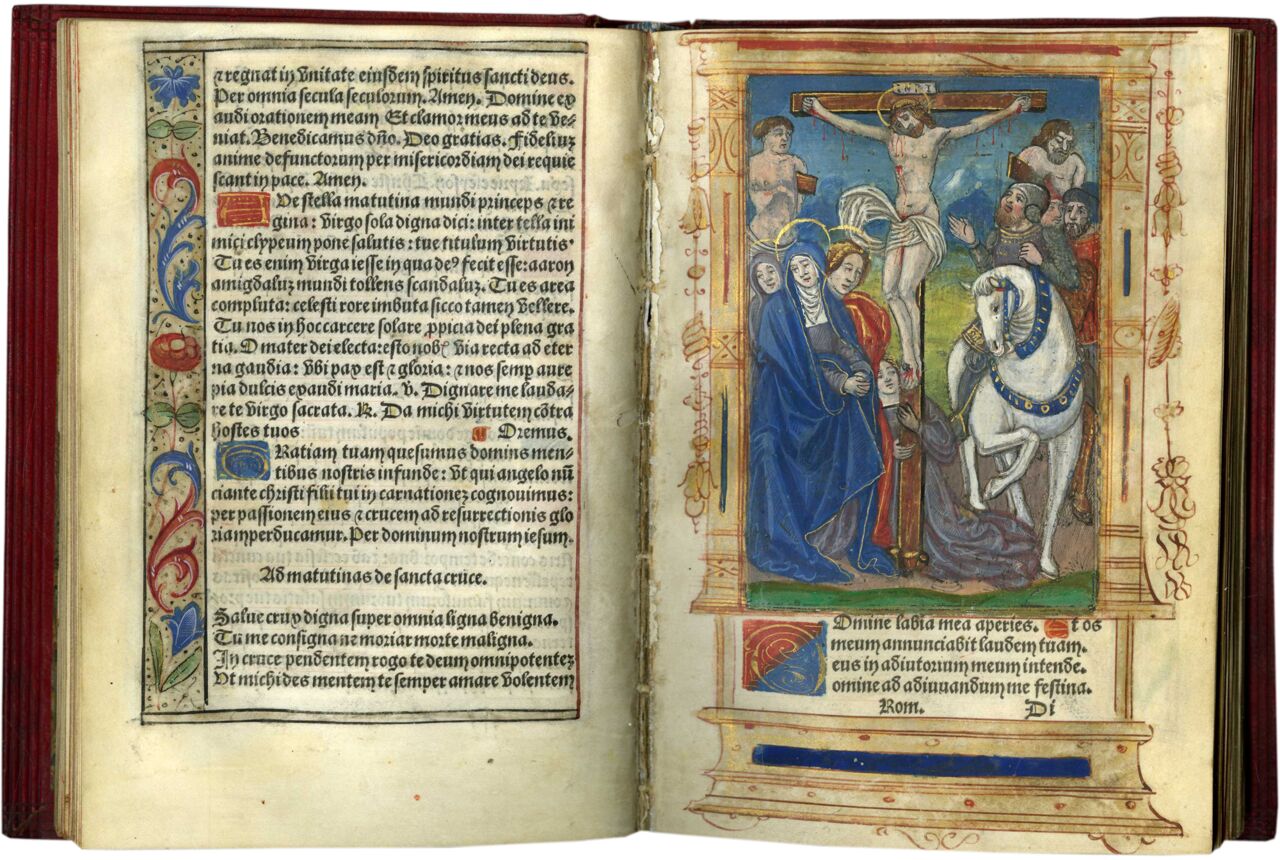 ⁊ regnat in vnitate eiusdem spiritus sancti deus.
Per omnia secula seculorum. Amen. Domine ex
audi orationem meam Et clamor meus ad te ve⸗
niat. Benedicamus dño. Deo gratias. Fideliuʒ
anime defunctorum per misericordiam dei requie
scant in pace. Amen.
Ve stella matutina mundi princeps ⁊ re
gina: virgo sola digna dici: inter tella ini
mici clypeum pone salutis: tue titulum virtutis.
Tu es enim virga iesse in qua deꝰ fecit esse: aaron
amigdaluʒ mundi tollens scandaluʒ. Tu es area
compluta: celesti rore imbuta sicco tamen vellere.
Tu nos in hoc carcere solare ꝓpicia dei plena gra
tia. O mater dei electa: esto nob̕ via recta ad eter
na gaudia: vbi pax est ⁊ gloria: ⁊ nos semꝑ aure
pia dulcis exaudi maria. v. Dignare me lauda⸗
re te virgo sacrata. R. Da michi virtutem cõtra
hostes tuos Oremus.
Ratiam tuam quesumus domine men⸗
tibus nostris infunde: vt qui angelo nũ
ciante christi filii tui in carnationeʒ cognouimus:
per passionem eius ⁊ crucem ad resurrectionis glo
riam perducamur. Per dominum nostrum iesum.
Ad matutinas de sancta cruce.
Salue crux digna super omnia ligna benigna.
Tu me consigna ne moriar morte maligna.
In cruce pendentem rogo te deum omnipotenteʒ
Vt michi des mentem te semper amare volentem
INRI
Omine labia mea aperies. Et os
meum annunciabit laudem tuam.
eus in adiutorium meum intende.
omine ad adiuuandum me festina.
Rom. Di